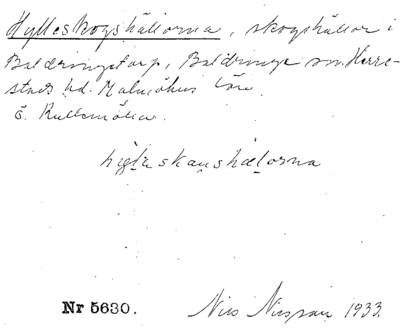 Hylleskogshällorna, skogshällor i
Baldringetorp, Baldringe sn. Herre-
stads hd. Malmöhus län.
ö. Kullemölla.
skaushælorna
Nr 5630. Nils Nilsson 1933.